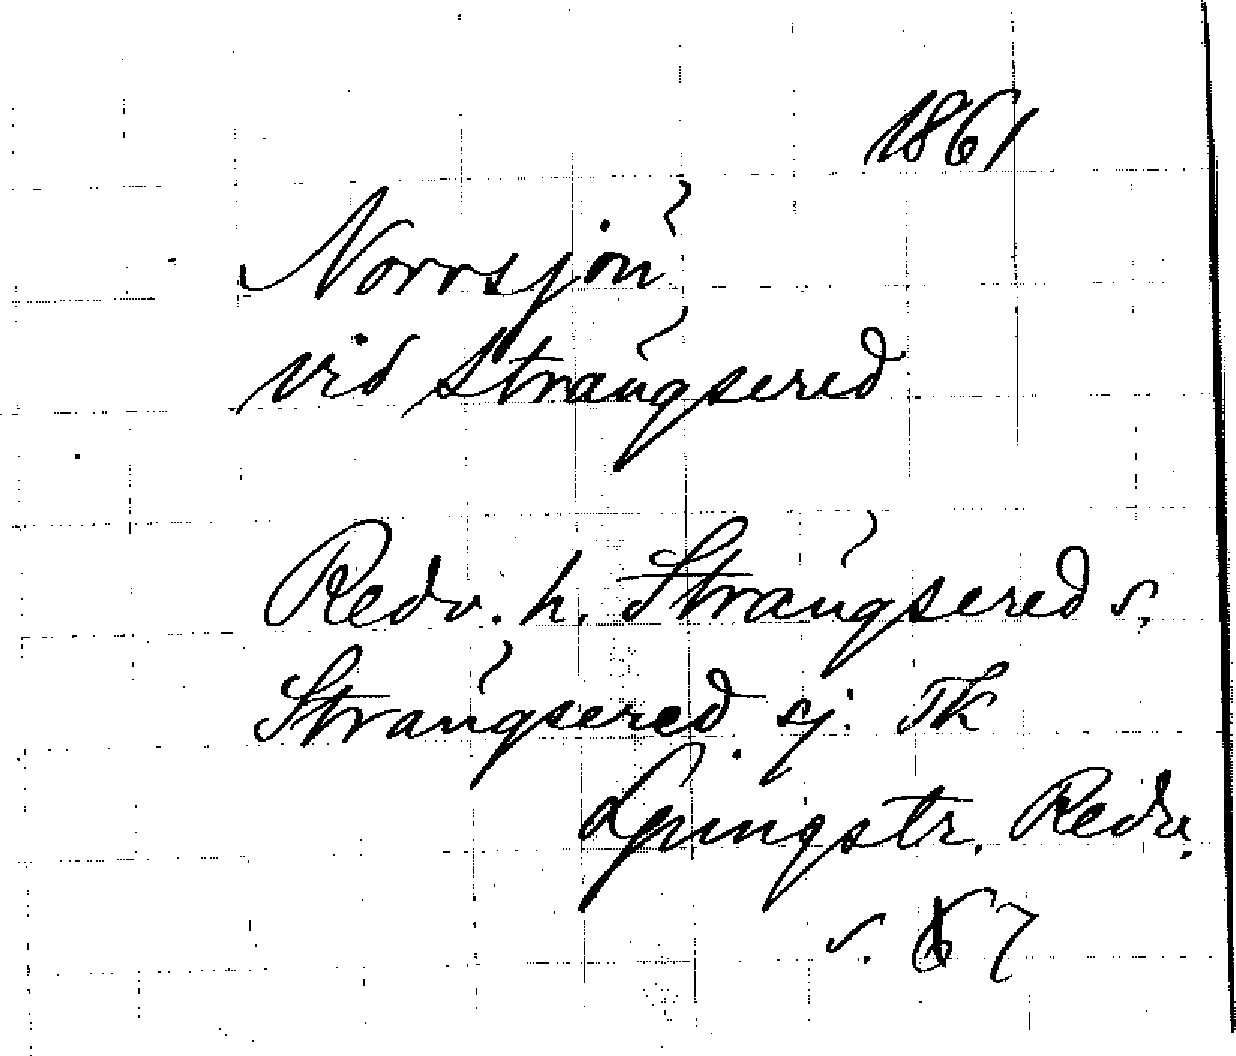 1861
Norrsjön
vid Strängsered
Redv. h. Strängsered s.
Strängsered sj. TK
Ljungstr. Redv.
s. 67